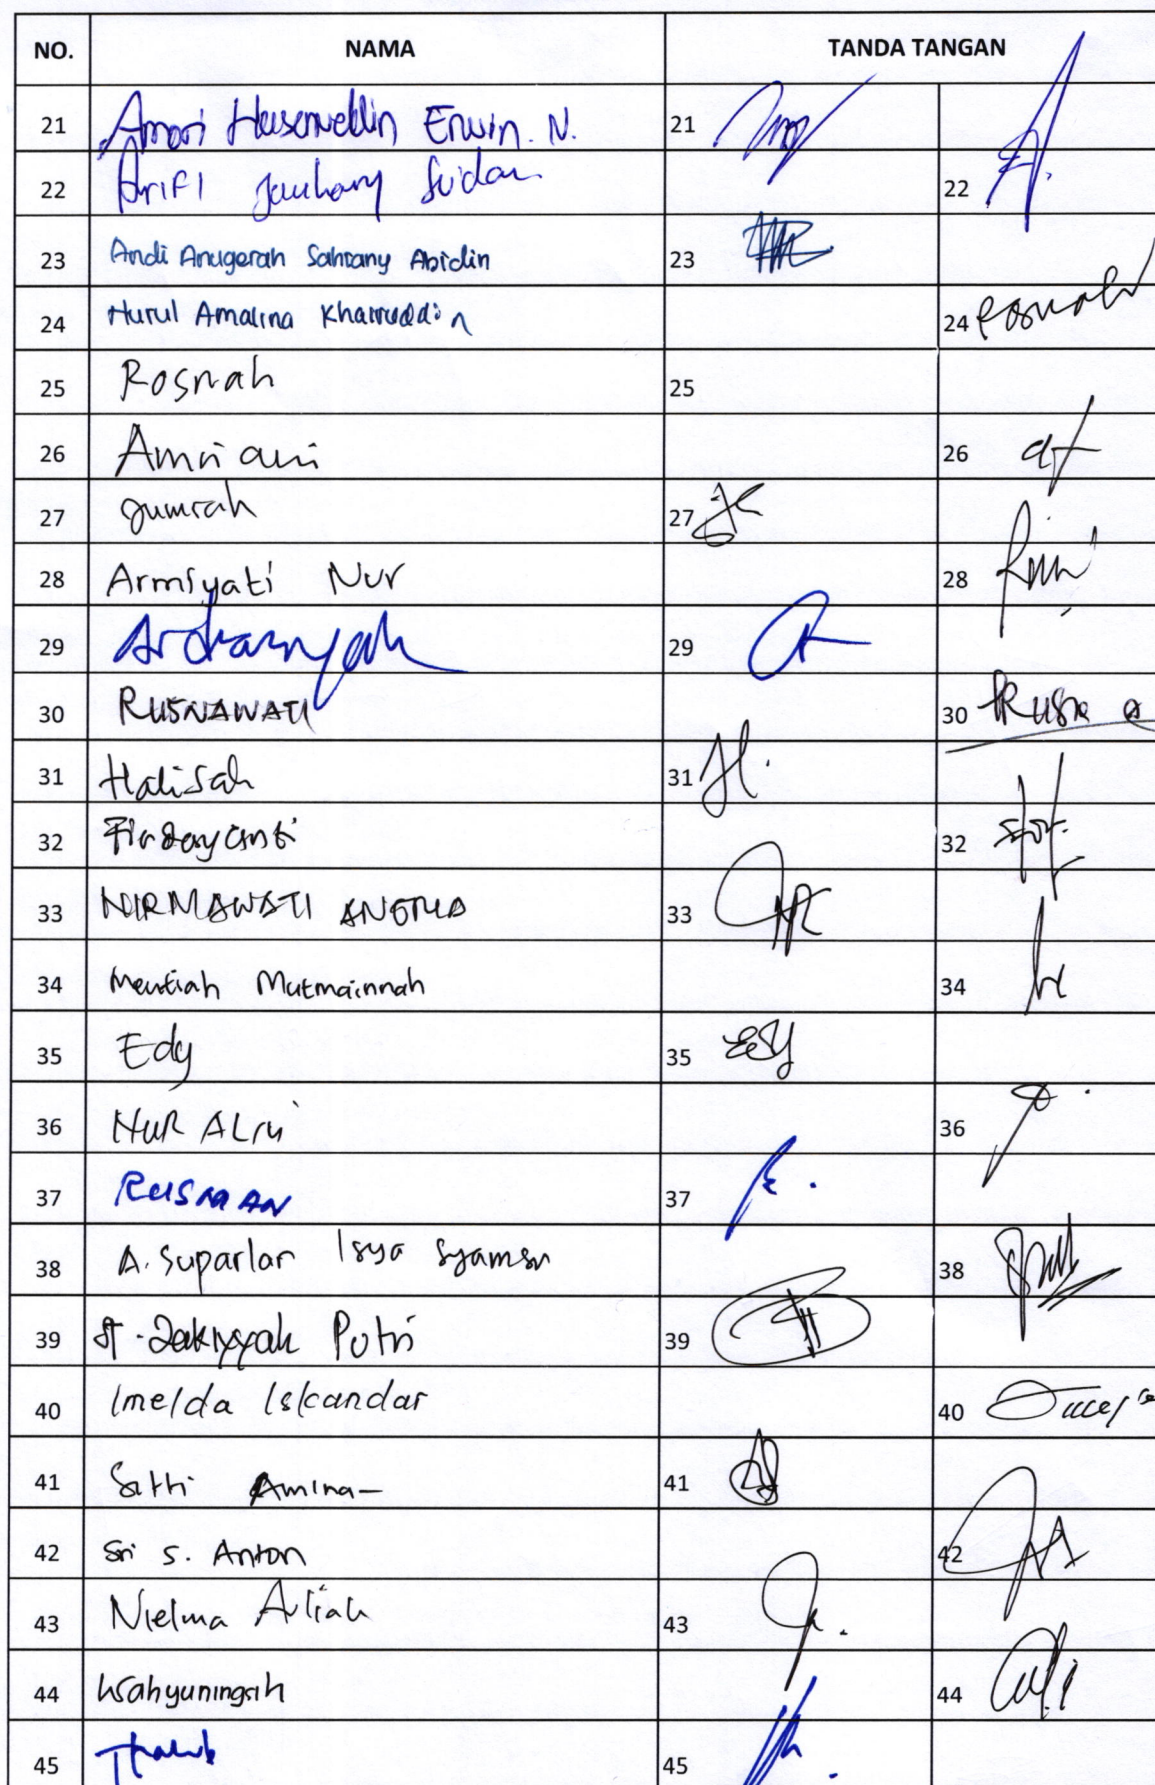 NO. NAMA TANDA TANGAN
21 Erwin. N. 21
22 Arifi Jauhary 22
23 Andi Anugerah Sahrany Abidin 23
24 Nurul Amalina Khairuddin 24
25 Rosnah 25
26 Amriani 26
27 Jumrah 27
28 Armiyati Nur 28
29 Ardiansyah 29
30 RUSNAWATI 30
31 Halisah 31
32 Firdayanti 32
33 NIRMAWATI 33
34 Meutiah Mutmainnah 34
35 Edy 35
36 NUR ALMI 36
37 RUSMAN 37
38 A. Suparlar Isya Syamsu 38
39 St. Zakiyyah Putri 39
40 Imelda Iskandar 40
41 Sitti Amina 41
42 Sri S. Anton 42
43 Nielma Aliah 43
44 Wahyuningsih 44
45 45